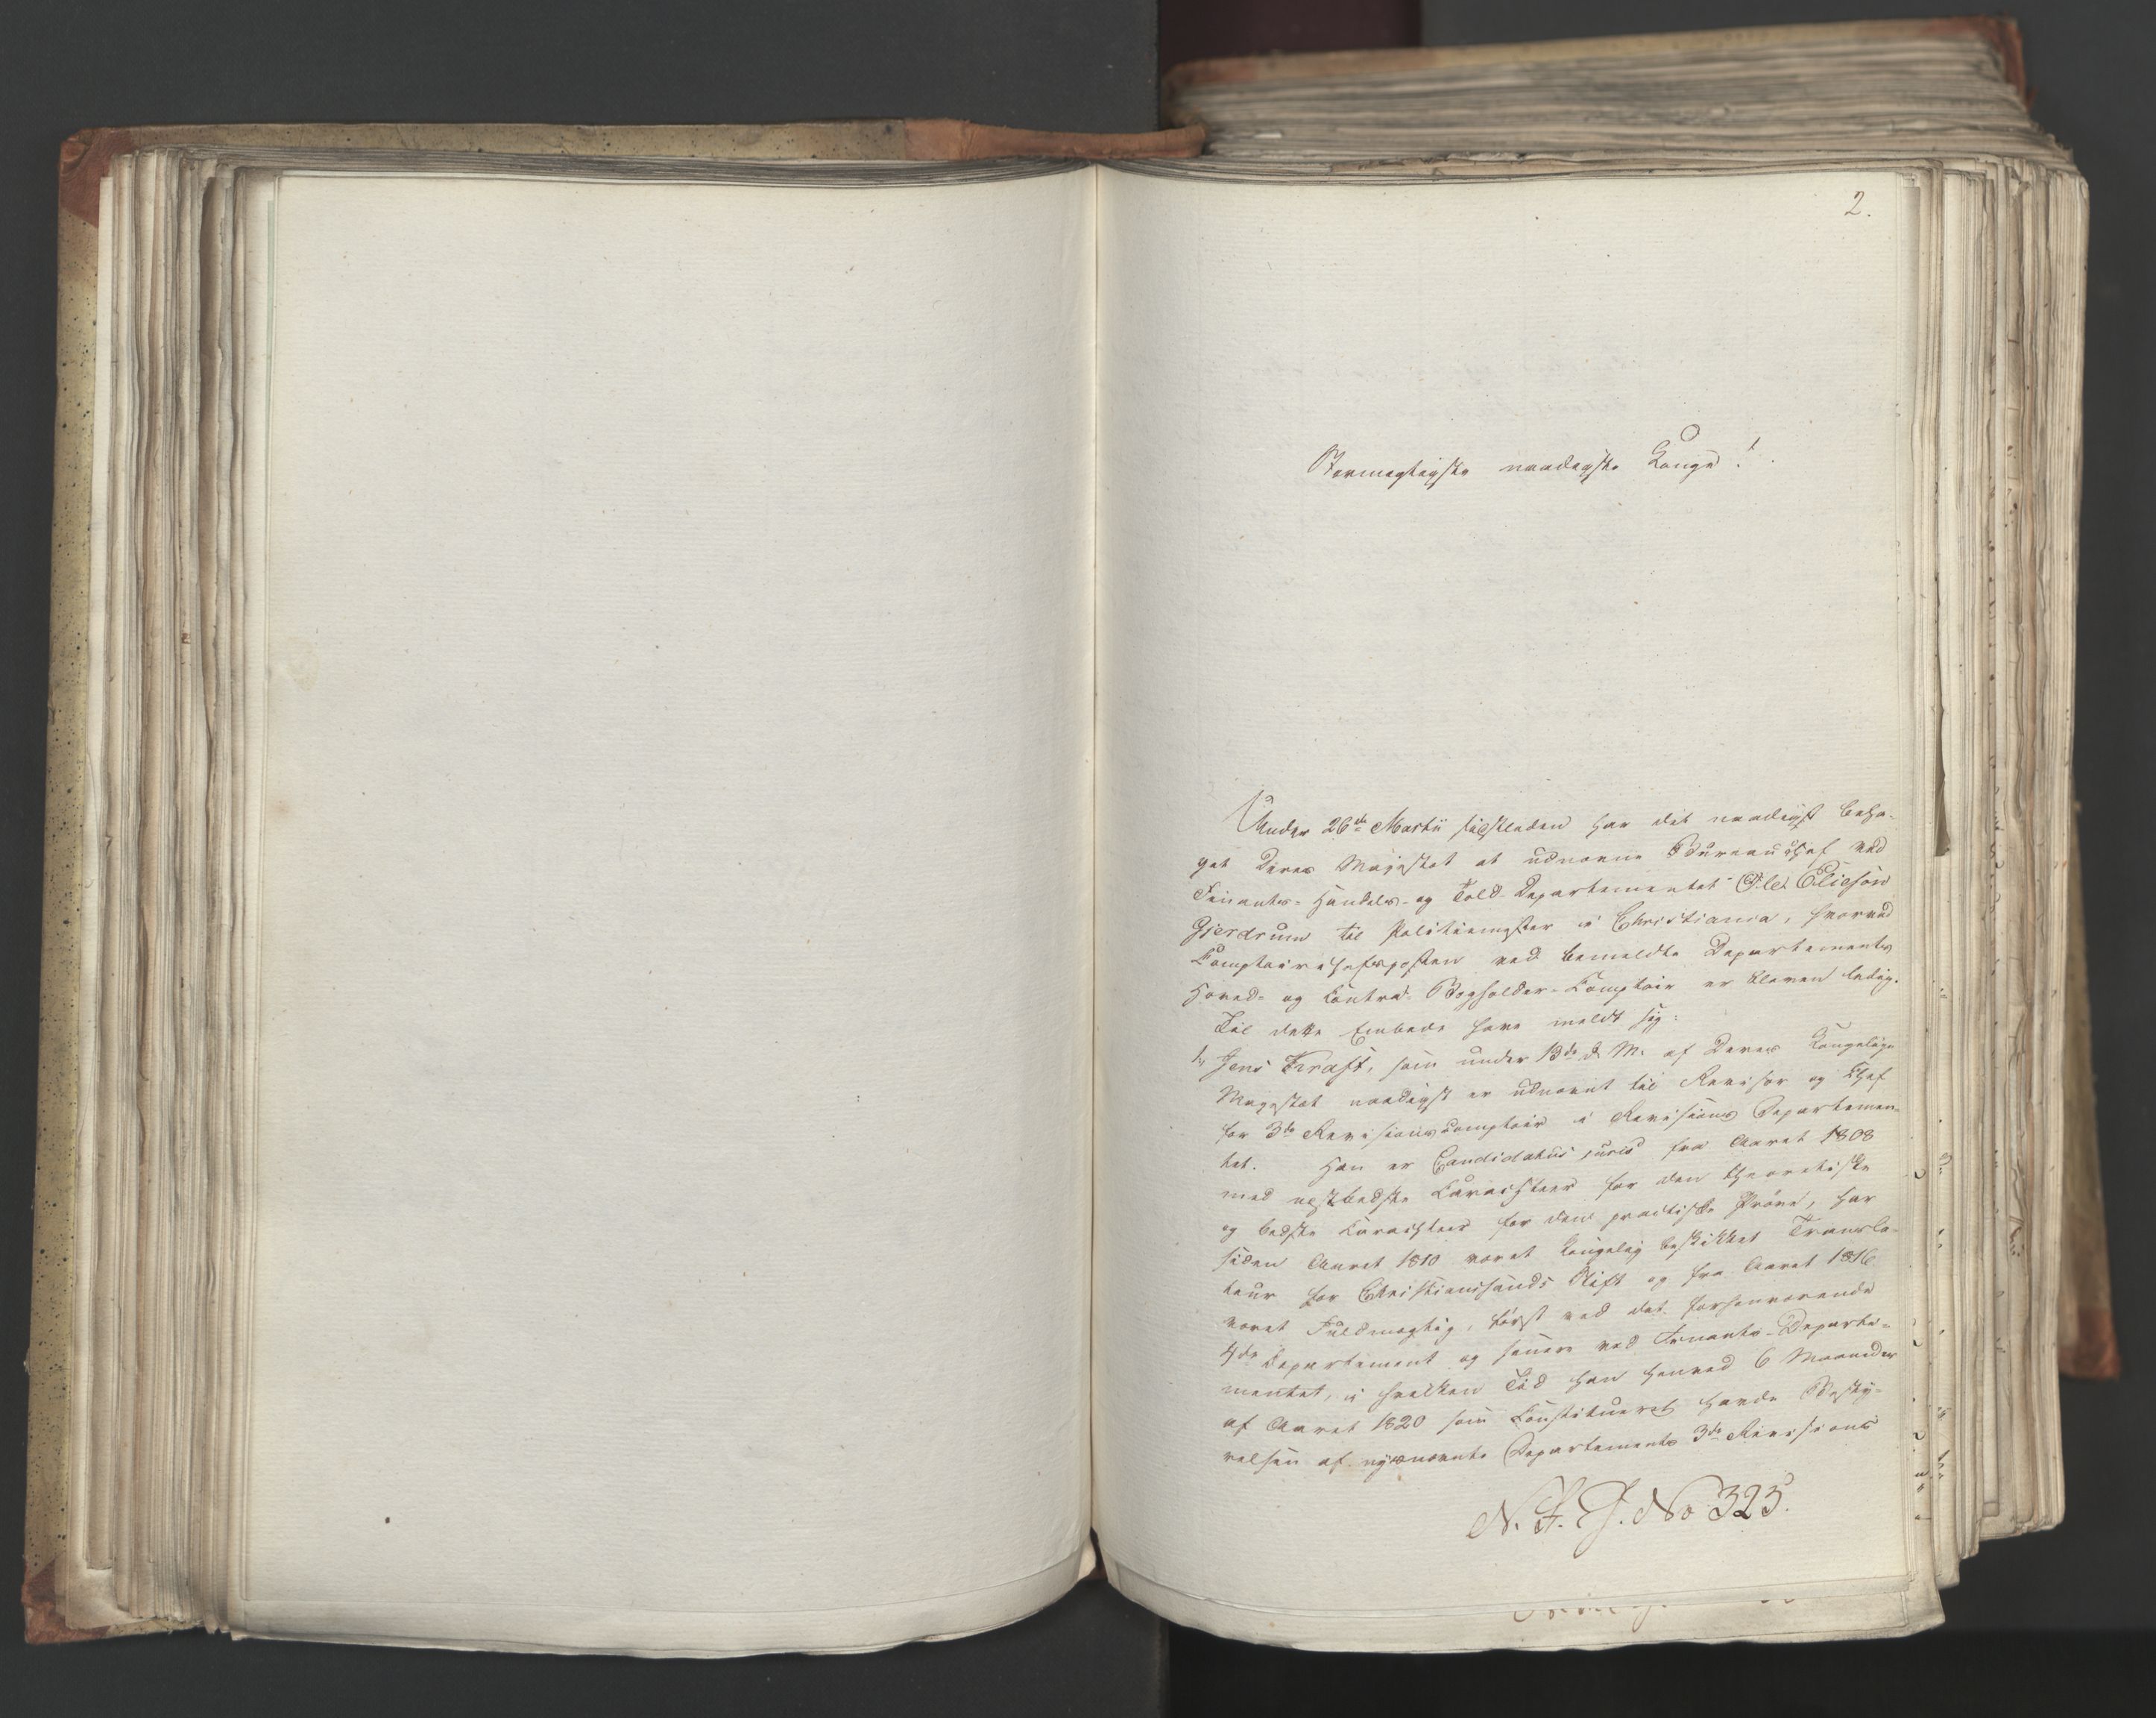 2.
Stormægtigste naadigste Konge!
Under 26de Martii sidstleden har det naadigst beha-
get Deres Majestæt at udnævne Bureauchef ved
Finants- Handels- og Told-Departementet Ole Eliesøn
Gjerdrum til Politiemester i Christiania, hvorved
Comptoirchefsposten ved bemeldte Departements
Hoved- og Contra-Bogholder-Comptoir er bleven ledig.
Til dette Embede have meldt sig:
1, Jens Kraft, som under 13de d. M. af Deres Kongelige
Majestæt naadigst er udnævnt til Revisor og Chef
for 3de Revisionscomptoir i Revisions Departemen-
tet. Han er Candidatus juris fra Aaret 1808
med næstbedste Carachteer for den theoretiske
og bedste Carachteer for den practiske Prøve, har
siden Aaret 1810 været kongelig beskikket Transla-
teur for Christiansands Stift og fra Aaret 1816
været Fuldmægtig, først ved det forhenværende
4de Departement og senere ved Finants-Departe-
mentet, i hvilken Tid han henved 6 Maaneder
af Aaret 1820 som Constitueret havde Besty-
relsen af nysnævnte Departements 3de Revisions
N. F. J. No 323.